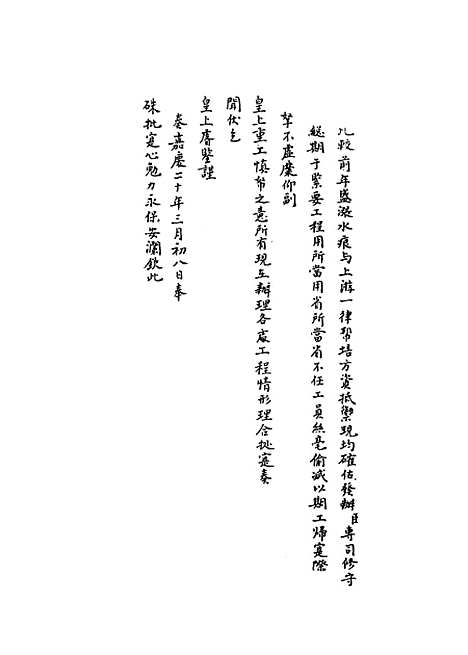 比較前年盛漲水痕與上游一律幫培方資抵禦現均確估發辦臣專司修守
總期于緊要工程用所當用省所當省不任工員絲毫偷減以期工歸寔際
帑不虛糜仰副
皇上重工慎帑之意所有現在辦理各處工程情形理合撫寔奏
聞伏乞
皇上睿鑒謹
奏嘉慶二十年三月初八日奉
硃批寔心勉力永保安瀾欽此